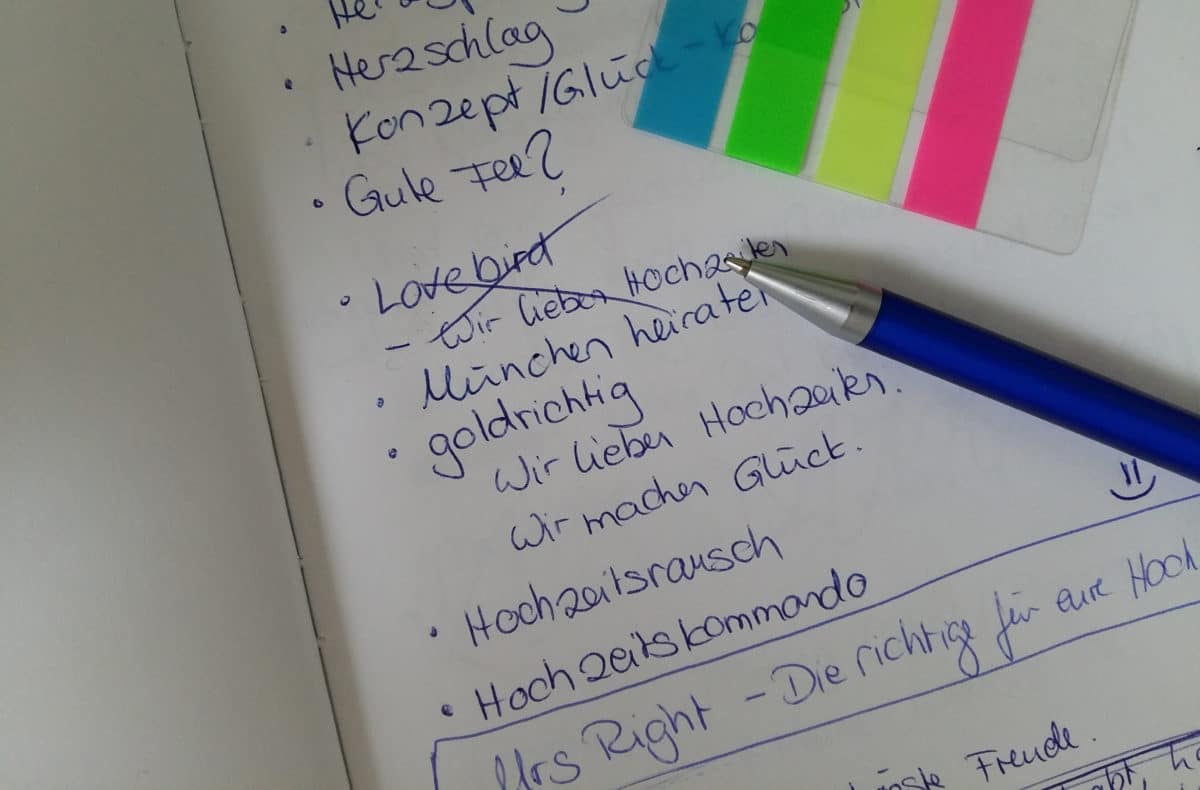 • Herzschlag
• Konzept/Glück-Ko
• Gute Fee?
• Lovebird
- Wir lieben Hochzeiten
• München heiraten
• goldrichtig
Wir lieben Hochzeiten.
Wir machen Glück.
• Hochzeitsrausch
• Hochzeitskommando
Mrs Right - Die richtige für eure Hoch
Freude.